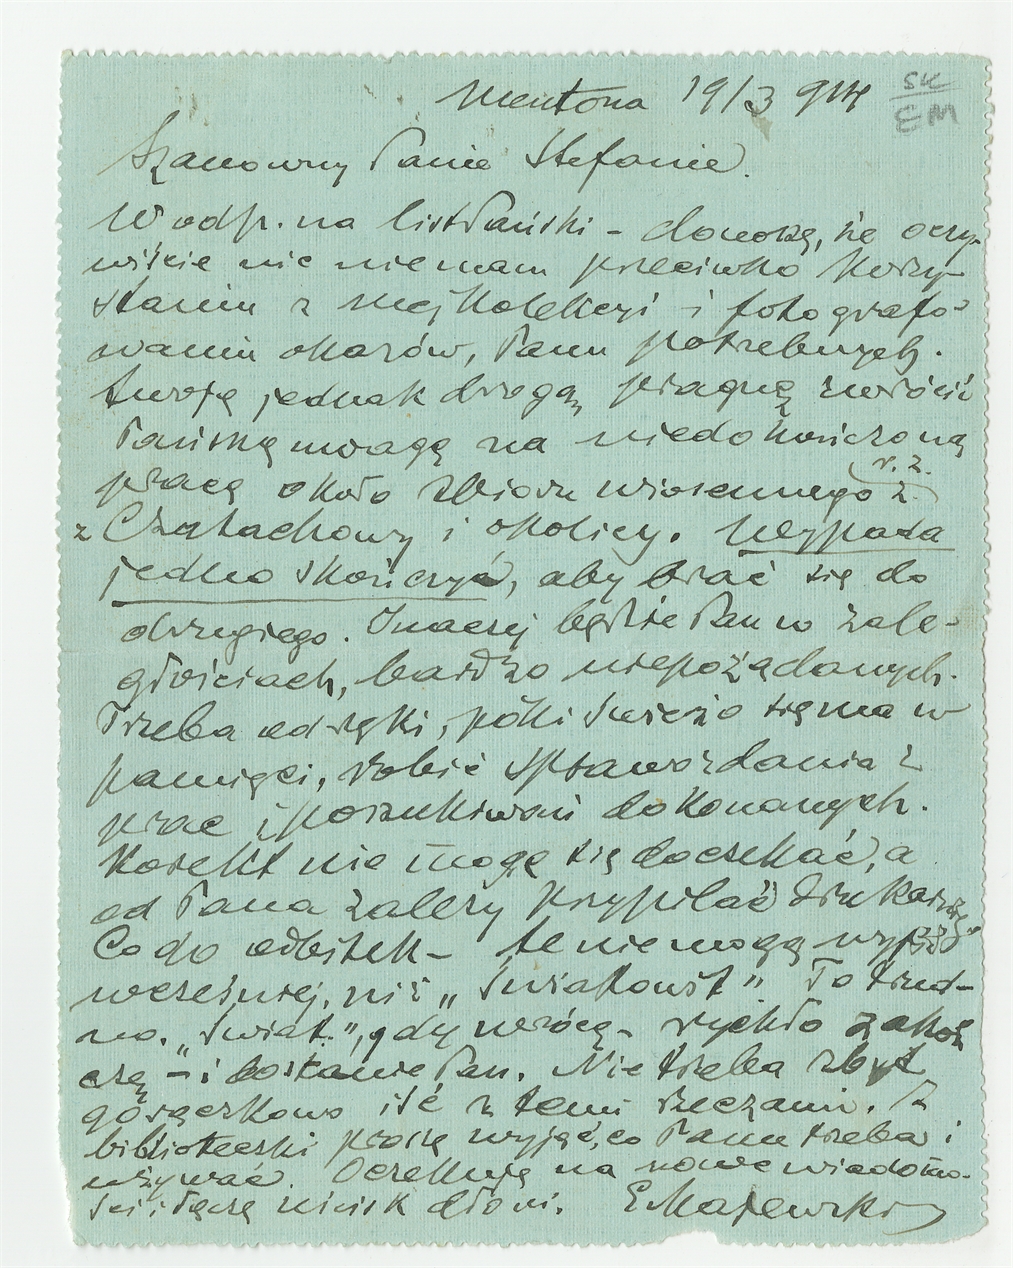 Mentona 19/3 914
SK
EM
Szanowny Panie Stefanie.
W odp. na list Pański – donoszę, że oczy-
wiście nic nie mam przeciwko korzy-
staniu z mej Kolekcyi i fotografo-
waniu okazów, Panu potrzebnych.
jednak drogą pragnę zwrócić
Pańską uwagę na niedokończoną
pracę około zbioru wiosennego r. z.
z Czatachowy i okolicy. Wypada
jedno skończyć, aby brać się do
drugiego. Inaczej będzie Pan w zale-
głościach, bardzo niepożądanych.
Trzeba od ręki, póki świeżo się ma w
pamięci, robić sprawozdania z
prac i poszukiwań dokonanych.
Korekt nie mogę się doczekać, a
od Pana zależy przypilać drukarzy.
Co do odbitek – te nie mogą wyjść
wcześniej, niż „Światowit” To trud-
no. „Świat.”, gdy wrócę – rychło zakoń
czę – i dostanie Pan. Nie trzeba zbyt
gorączkowo iść z temi rzeczami. Z
biblioteczki proszę wyjąć, co Panu trzeba i
używać. Oczekuję na nowe wiadomo-
ści i łączę uścisk dłoni. EMajewski